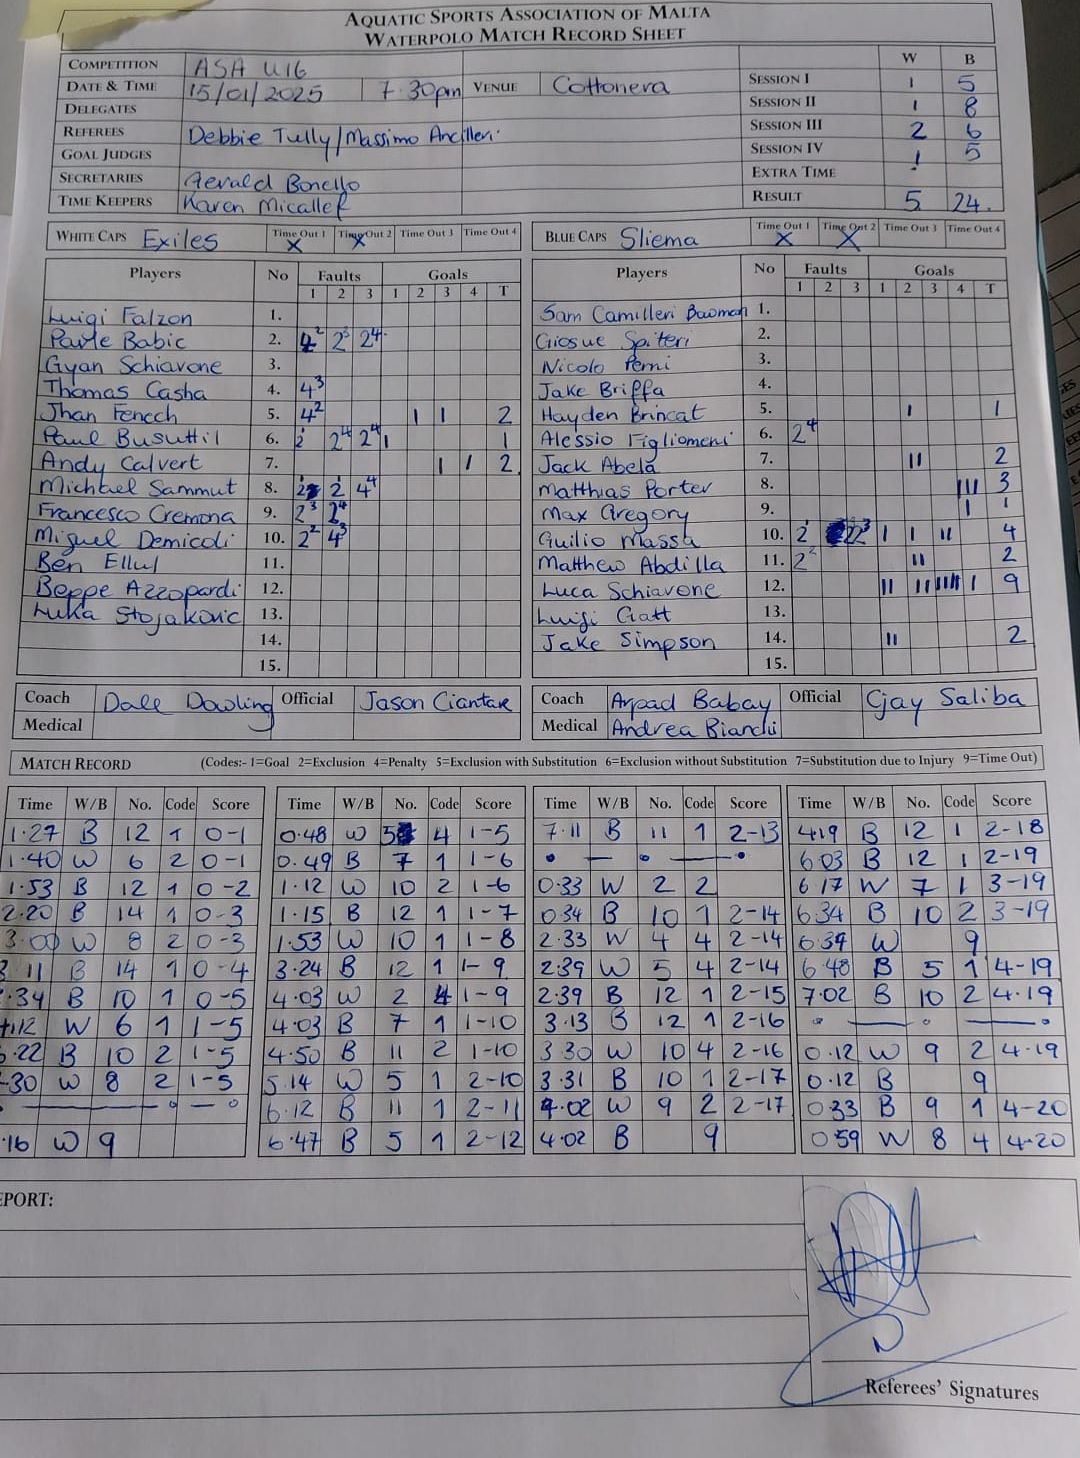 AQUATIC SPORTS ASSOCIATION OF MALTA
WATERPOLO MATCH RECORD SHEET
COMPETITION ASA U16
DATE & TIME 15/01/2025 7.30pm VENUE Cottonera
DELEGATES
REFEREES Debbie Tully/Massimo Ancilleri
GOAL JUDGES
SECRETARIES Gerald Bonello
TIME KEEPERS Karen Micallef
W B
SESSION I 1 5
SESSION II 1 8
SESSION III 2 6
SESSION IV 1 5
EXTRA TIME
RESULT 5 24.
WHITE CAPS Exiles Time Out 1 X Time Out 2 X Time Out 3 Time Out 4
Players No Faults Goals
1 2 3 1 2 3 4 T
Luigi Falzon 1.
Pavle Babic 2. 4² 2³ 2⁴
Gyan Schiavone 3.
Thomas Casha 4. 4³
Jhan Fenech 5. 4² I I 2
Paul Busuttil 6. 2¹ 2⁴ 2⁴ 1 1
Andy Calvert 7. I I 2
Michael Sammut 8. 2¹ 2¹ 4⁴
Francesco Cremona 9. 2³ 2⁴
Miguel Demicoli 10. 2² 4³
Ben Ellul 11.
Beppe Azzopardi 12.
Luka Stojakovic 13.
14.
15.
BLUE CAPS Sliema Time Out 1 X Time Out 2 X Time Out 3 Time Out 4
Players No Faults Goals
1 2 3 1 2 3 4 T
Sam Camilleri Bowman 1.
Giosue Spiteri 2.
Nicolo Pemi 3.
Jake Briffa 4.
Hayden Brincat 5. I 1
Alessio Figliomeni 6. 2⁴
Jack Abela 7. II 2
Matthias Porter 8. III 3
Max Gregory 9. I 1
Guilio Massa 10. 2¹ 2³ I I II 4
Matthew Abdilla 11. 2² II 2
Luca Schiavone 12. II III IIII I 9
Luigi Gatt 13.
Jake Simpson 14. II 2
15.
Coach Dale Dowling Official Jason Ciantar
Medical
Coach Arpad Babay Official Gjay Saliba
Medical Andrea Bianchi
MATCH RECORD (Codes:- 1=Goal 2=Exclusion 4=Penalty 5=Exclusion with Substitution 6=Exclusion without Substitution 7=Substitution due to Injury 9=Time Out)
Time W/B No. Code Score
1.27 B 12 1 0-1
1.40 W 6 2 0-1
1.53 B 12 1 0-2
2.20 B 14 1 0-3
3.00 W 8 2 0-3
3.11 B 14 1 0-4
.34 B 10 1 0-5
4.12 W 6 1 1-5
.22 B 10 2 1-5
.30 W 8 2 1-5
.16 W 9
Time W/B No. Code Score
0.48 W 5 4 1-5
0.49 B 7 1 1-6
1.12 W 10 2 1-6
1.15 B 12 1 1-7
1.53 W 10 1 1-8
3.24 B 12 1 1-9
4.03 W 2 4 1-9
4.03 B 7 1 1-10
4.50 B 11 2 1-10
5.14 W 5 1 2-10
6.12 B 11 1 2-11
6.47 B 5 1 2-12
Time W/B No. Code Score
7.11 B 11 1 2-13
0.33 W 2 2
0.34 B 10 1 2-14
2.33 W 4 4 2-14
2.39 W 5 4 2-14
2.39 B 12 1 2-15
3.13 B 12 1 2-16
3.30 W 10 4 2-16
3.31 B 10 1 2-17
4.02 W 9 2 2-17
4.02 B 9
Time W/B No. Code Score
4.19 B 12 1 2-18
6.03 B 12 1 2-19
6.17 W 7 1 3-19
6.34 B 10 2 3-19
6.39 W 9
6.48 B 5 1 4-19
7.02 B 10 2 4.19
0.12 W 9 2 4.19
0.12 B 9
0.33 B 9 1 4-20
0.59 W 8 4 4-20
EPORT:
Referees' Signatures